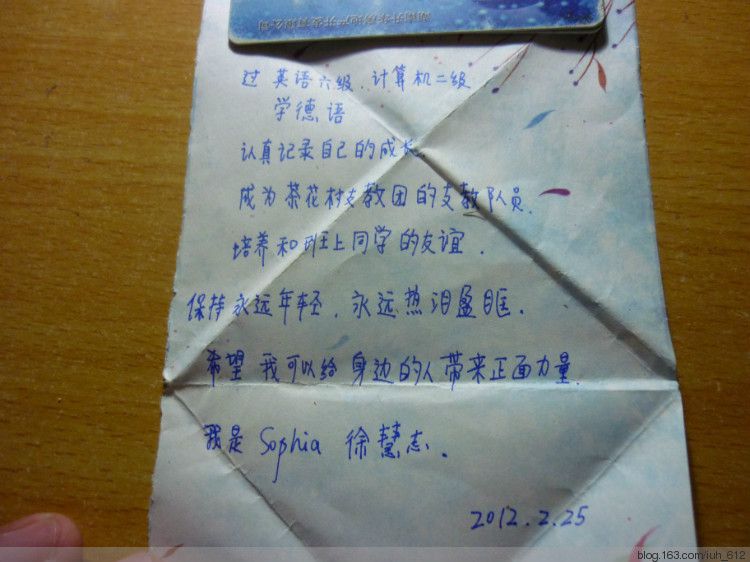 过 英语六级、计算机二级
学德语
认真记录自己的成长.
成为茶花村支教团的支教队员.
培养和班上同学的友谊.
保持永远年轻.永远热泪盈眶.
希望我可以给身边的人带来正面力量.
我是 Sophia 徐慧志.
2012.2.25
blog.163.com/iuh_612